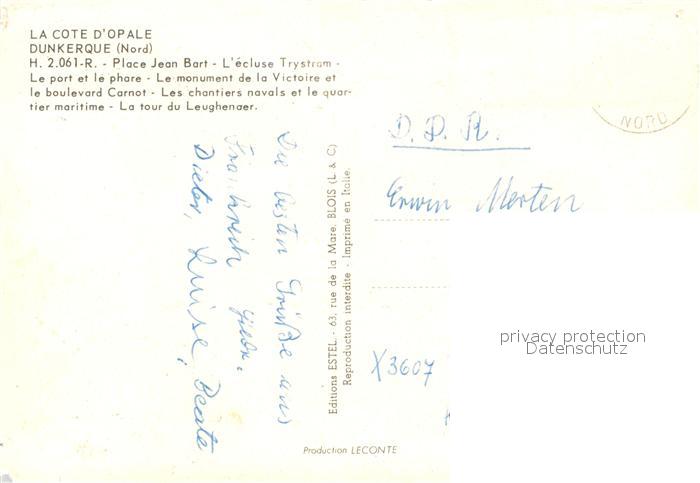 LA COTE D'OPALE
DUNKERQUE (Nord)
H. 2.061-R. - Place Jean Bart - L'écluse Trystram -
Le port et le phare - Le monument de la Victoire et
le boulevard Carnot - Les chantiers navals et le quar-
tier maritime - La tour du Leughenaer.
Die besten Grüße aus
Frankreich
Dieter, Luise, Beate
Editions ESTEL - 63, rue de la Mare, BLOIS (L & C)
Reproduction interdite - Imprimé en Italie.
NORD
D. D. R.
Erwin Merten
X3607
privacy protection
Datenschutz
Production LECONTE